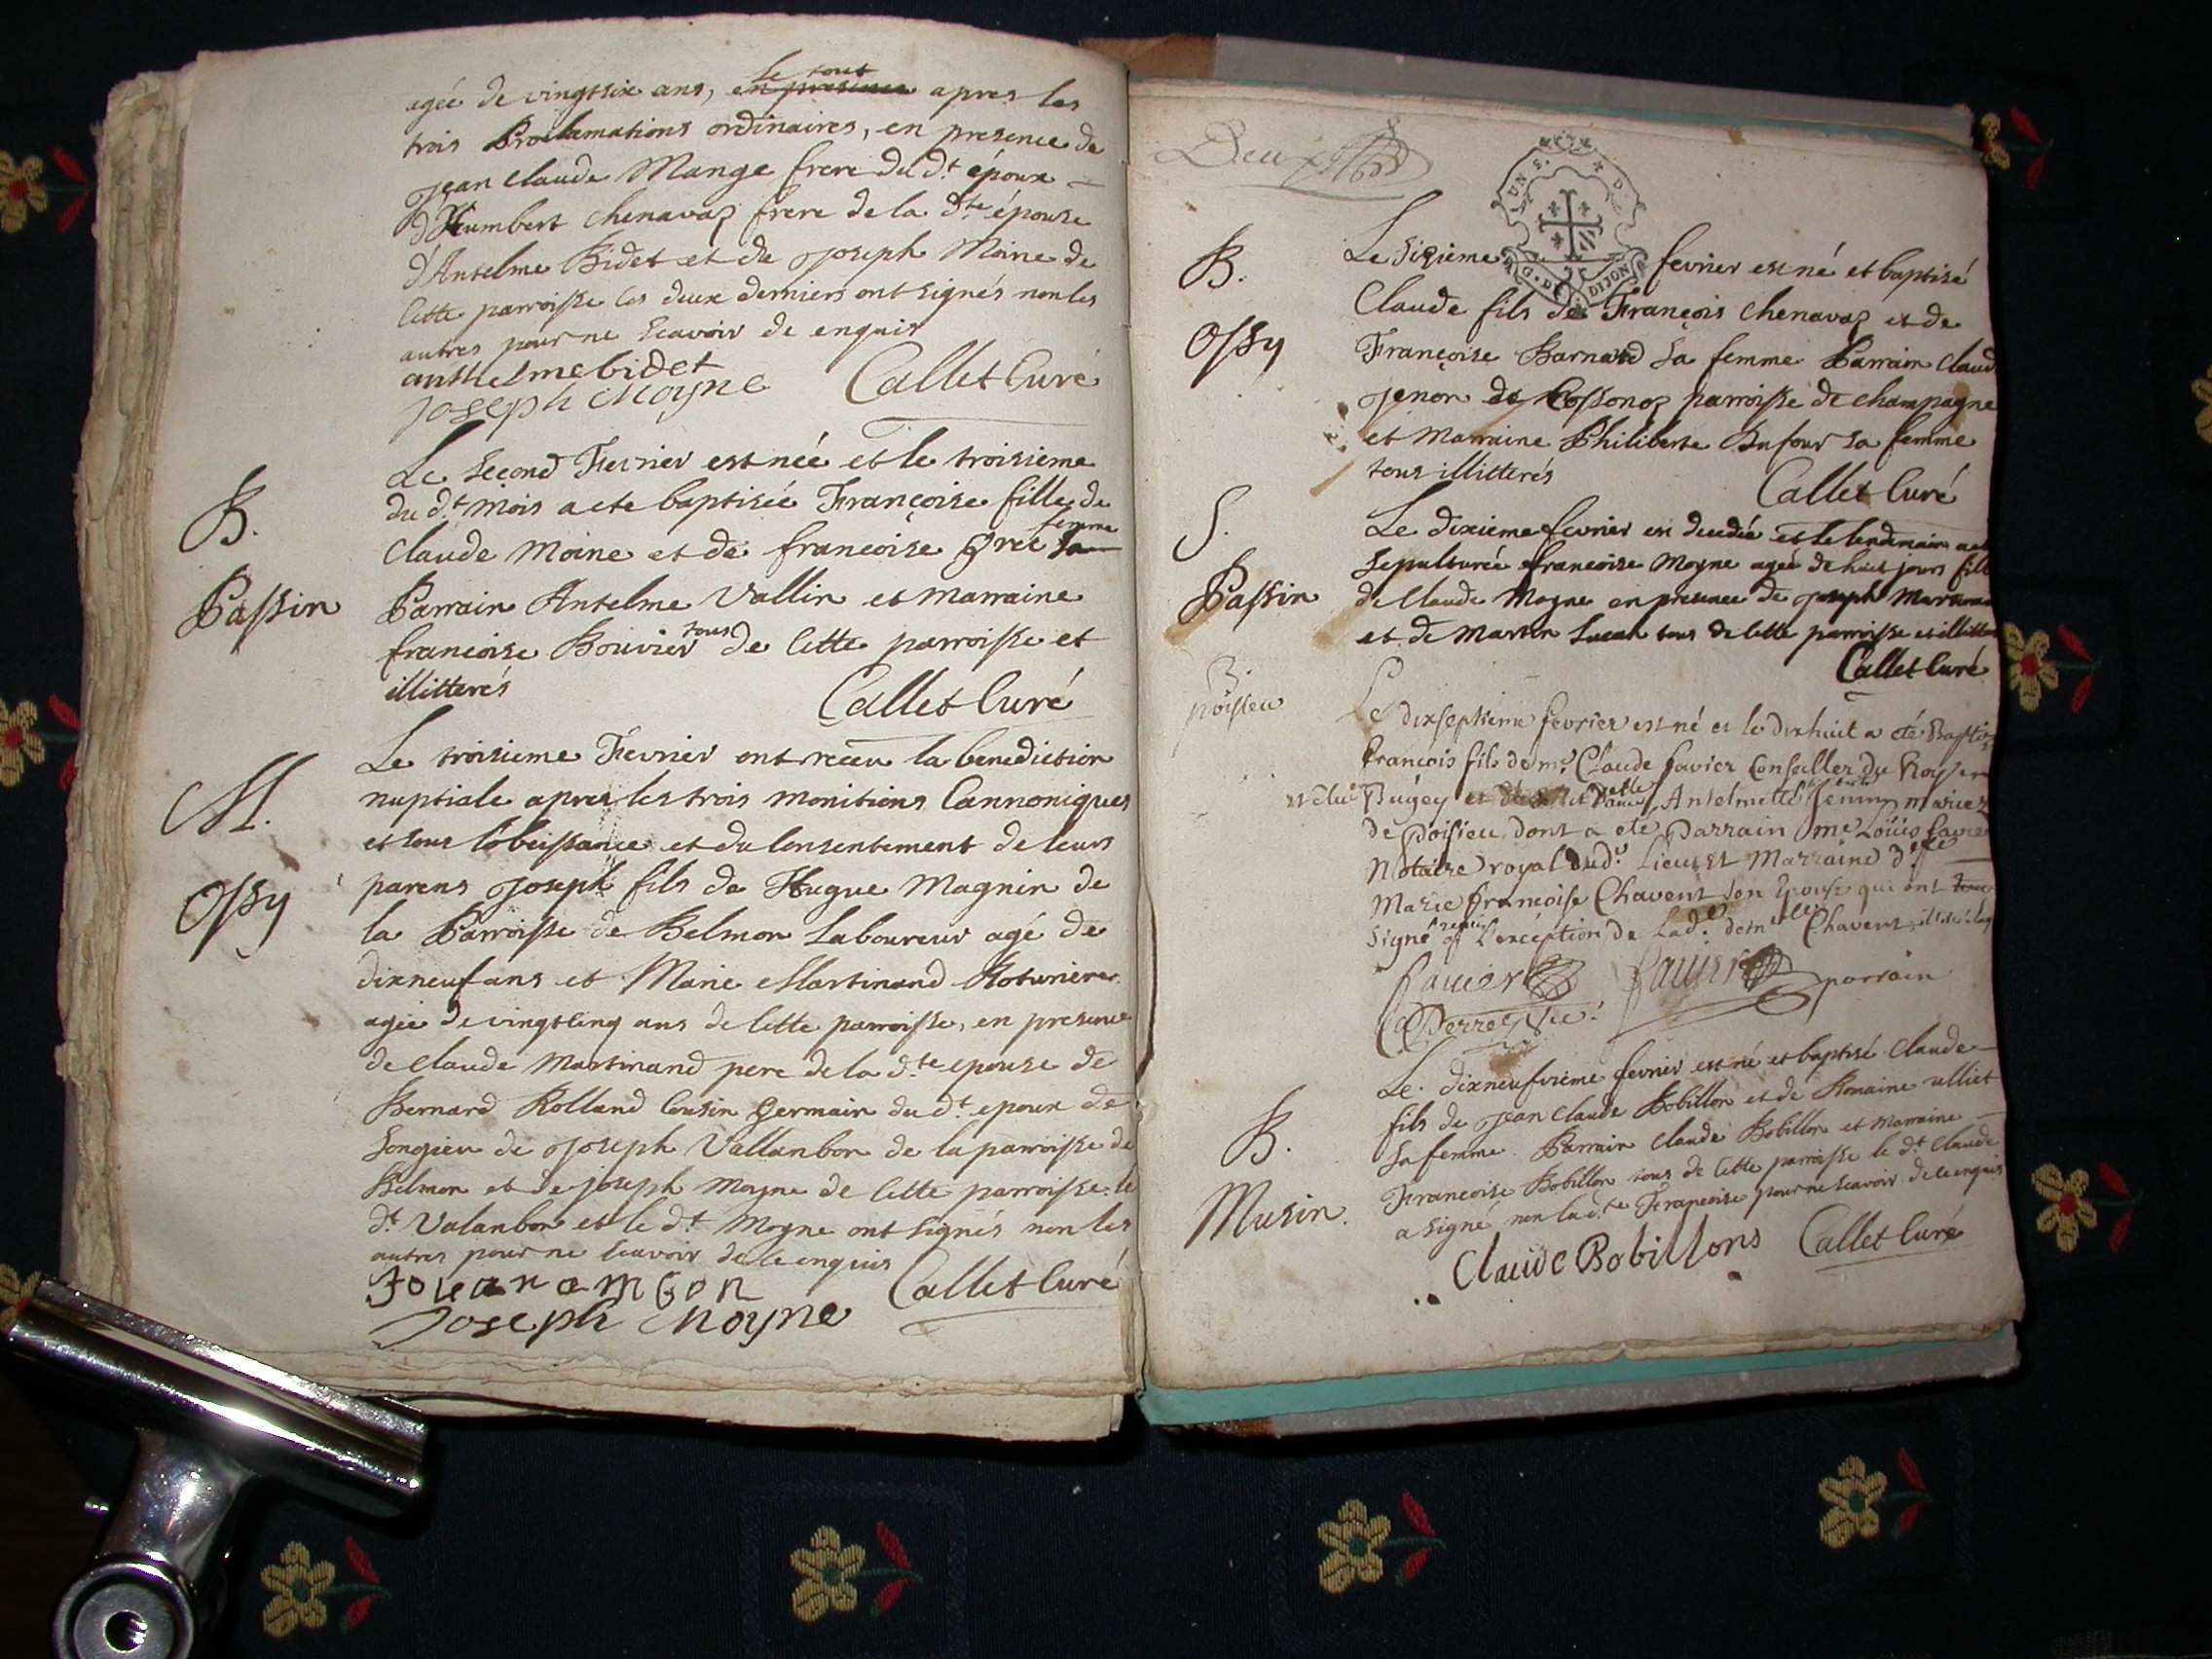 agée de vingtsix ans, en presence le tout apres les
trois Proclamations ordinaires, en presence de
Jean Claude Mange frere du d.t époux
d'Humbert Chenavaz frere de la d.te épouse
d'Antelme Bidet et de Joseph Moine de
Cette parroisse les deux derniers ont signés non les
autres pour ne scavoir de enquis
anthelme bidet
Joseph Moyne Callet Curé
Le second Fevrier est née et le troisieme
B. du d.t mois a ete baptisée Françoise fille de
Claude Moine et de francoise Grec sa femme
Passin Parrain Antelme Vallin et Marraine
francoise Bouvier tous de Cette parroisse et
illitterés Callet Curé
Le troisieme Fevrier ont receu la benediction
M. nuptiale apres les trois monitions Cannoniques
et sous l'obeissance et du Consentement de leurs
Ossy parens Joseph fils de Hugue Magnin de
la Parroisse de Belmon Laboureur agé de
dixneuf ans et Marie Martinand Roturiere
agée de vingtcinq ans de Cette parroisse, en presence
de Claude Martinand pere de la d.te epouse de
Bernard Rolland Cousin Germain du d.t epoux de
Songieu de Joseph Vallanbon de la parroisse de
Belmon et de joseph Moyne de Cette parroisse. le
d.t Valanbon et le d.t Moyne ont signés non les
autres pour ne scavoir de ce enquis
Joseph Moyne Callet Curé
Deux
UN S. D.
G. DE DIJON
B. Le sixieme fevrier est né et baptisé
Claude fils de François Chenavaz et de
Ossy Françoise Barnard sa femme Parrain Claud
Jenon de Cossonoz parroisse de Champagne
et Marraine Philiberte Dufour sa femme
tous illitterés Callet Curé
S. Le dixieme fevrier est decedée et le lendemain a
sepulturée francoise Moyne agée de huit jours fill
Passin de Claude Moyne en presence de Joseph
et de Martin tous de Cette parroisse et illitter
Callet Curé
B.
poisieu Le dixseptieme fevrier est né et le dixhuit a eté Bapti
François fils de m.e Claude favier Conseiller du Roy
Bugey et Antelmette mariez
de Poisieu, dont a eté Parrain me Loüis favier
Notaire royal dud.t Lieu et Marraine d.lle
Marie françoise Chavent son Epouse qui ont
signé a l'exception de Lad.e dem.lle Chavent
favier favier parrain
Le dixneufvieme fevrier est né et baptisé Claude
fils de Jean Claude Bobillon et de Romaine ulliet
B. sa femme. Parrain Claude Bobillon et Marraine
Francoise Bobillon tous de Cette parroisse le d.t Claude
Musin. a signé non la d.te Françoise pour ne scavoir de ce enquis
Claude Bobillons Callet Curé